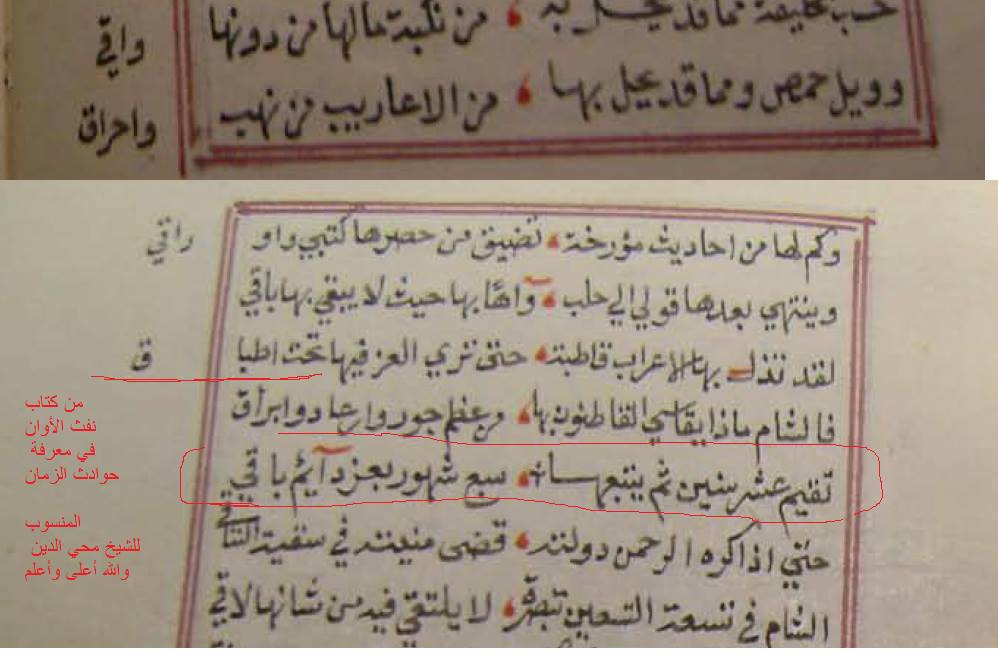 مما قد يحل به من نكبة مالها من دونها
واقي
وويل حمص ومما قد يحل بها من الاعاريب من نهب
واحراق
وكم لها من احاديث مؤرخة تضيق من حصرها كتبي واو
راقي
وينتهي بعدها قولي الي حلب واها بها حيث لا يبقي بها باقي
لقد تذل بها الاعراب قاطبة حتى تري العز فيها تحت اطبا
ق
فالشام ماذا يقاسي القاطنون بها من عظم جور وارعاد وابراق
تقيم عشر سنين ثم يتبعها سبع شهور بعز دآيم باقي
حتي اذا كره الرحمن دولته قضى منيته في سفينة
الشام في تسعة التسعين تبصره لا يلتقي فيه من شانها لاقي
من كتاب
نفث الأوان
في معرفة
حوادث الزمان
المنسوب
للشيخ محي الدين
والله أعلى وأعلم